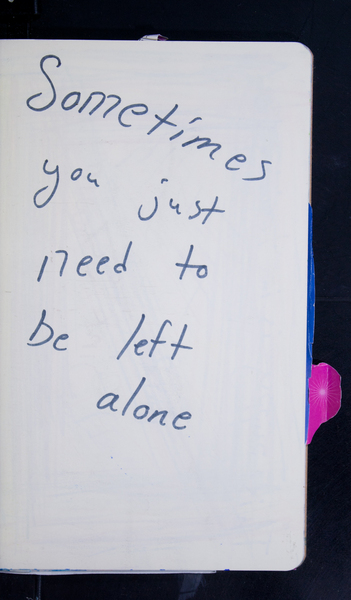 Sometimes
you just
need to
be left
alone